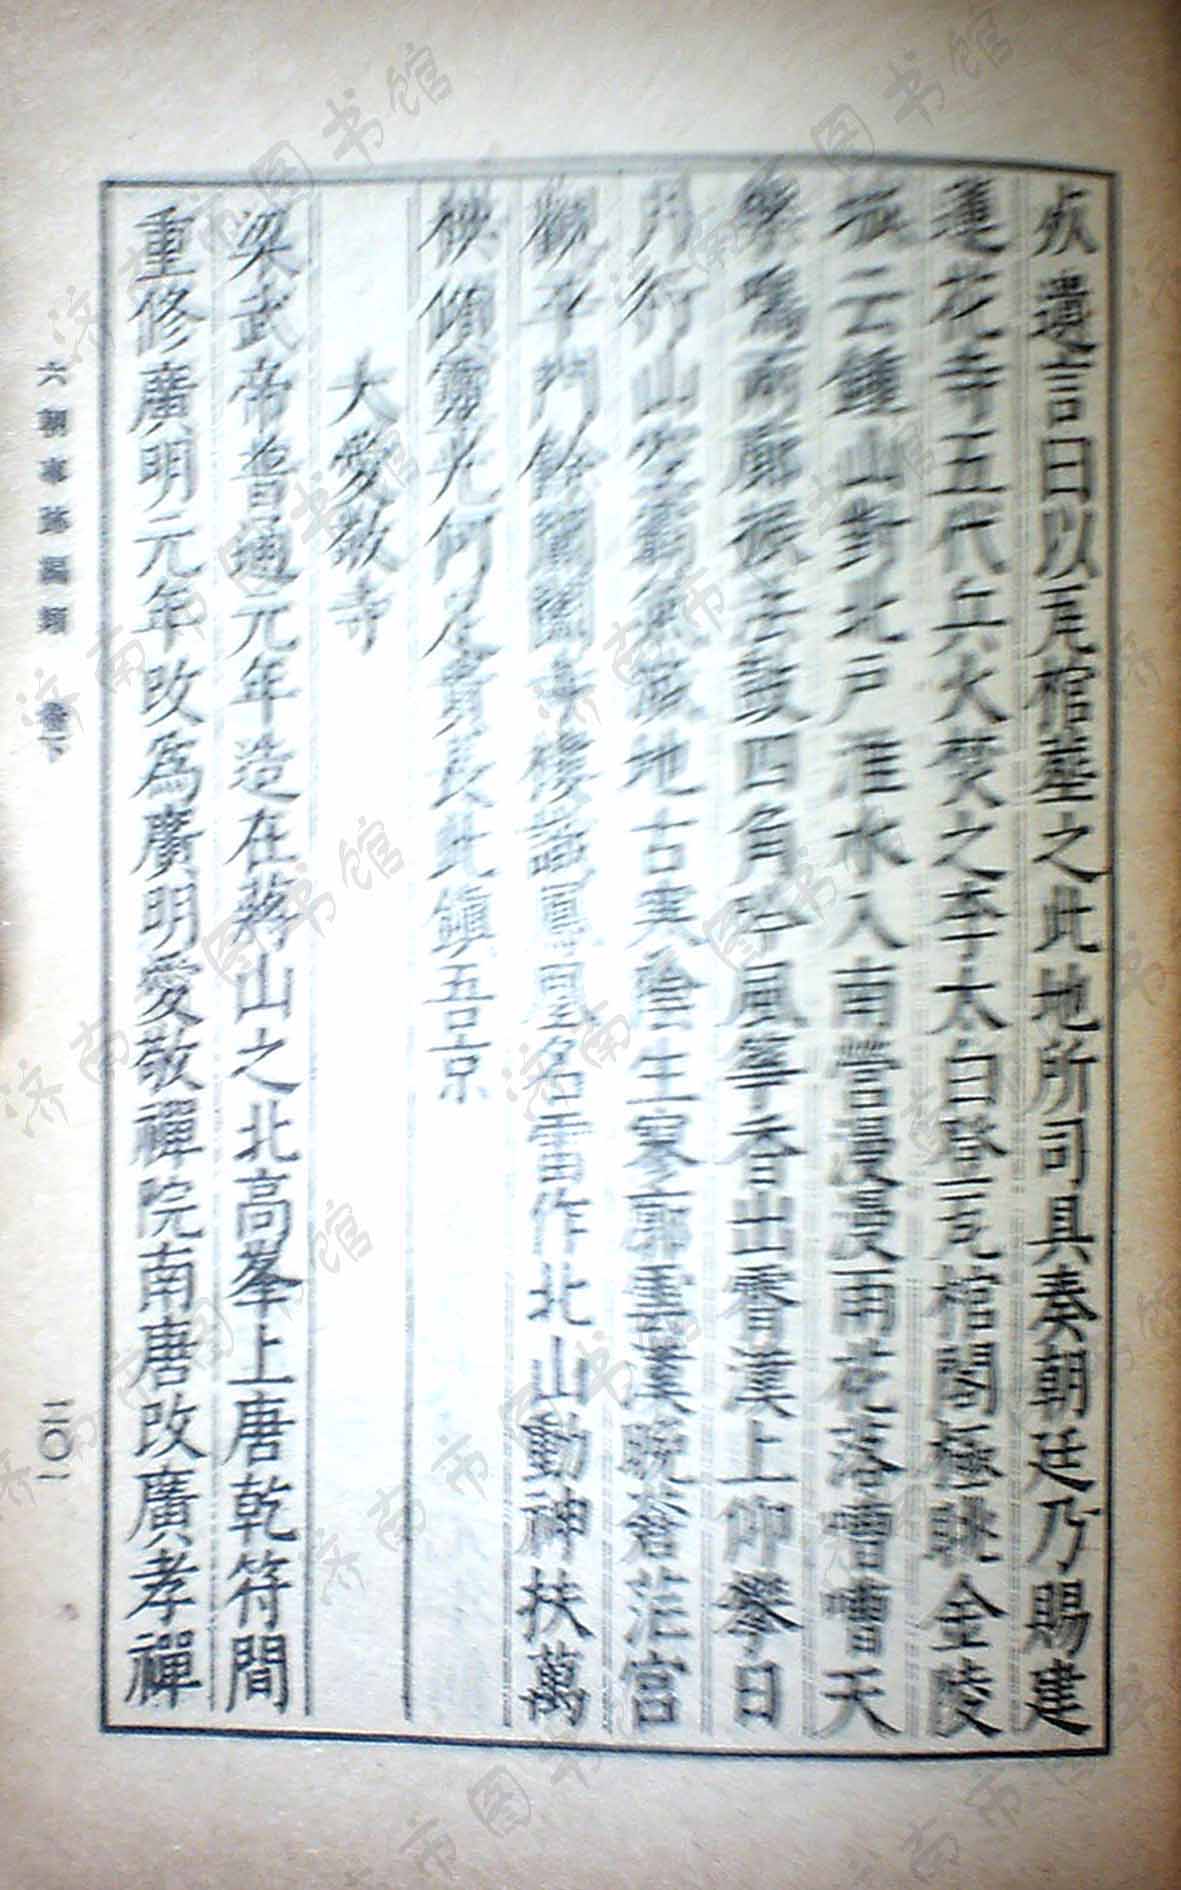 疾遺言曰以瓦棺塟之此地所司具奏朝廷乃賜建
蓮花寺五代兵火焚之李太白登瓦棺閣極眺金陵
城云鍾山對北戶淮水入南營漫漫雨花落嘈嘈天
樂鳴兩廊振法鼓四角吟風筝杳出霄漢上仰攀日
月行山空霸氣滅地古寒陰生寥廓雲漢晚蒼茫宮
觀平門餘閶闔字樓識鳳凰名雷作北山動神扶萬
栱傾靈光何足貴長此鎮吾京
大愛敬寺
梁武帝普通元年造在蔣山之北高峯上唐乾符間
重修廣明元年改為廣明愛敬禪院南唐改廣孝禪
六朝事跡編類 卷下
二〇一
济南市图书馆